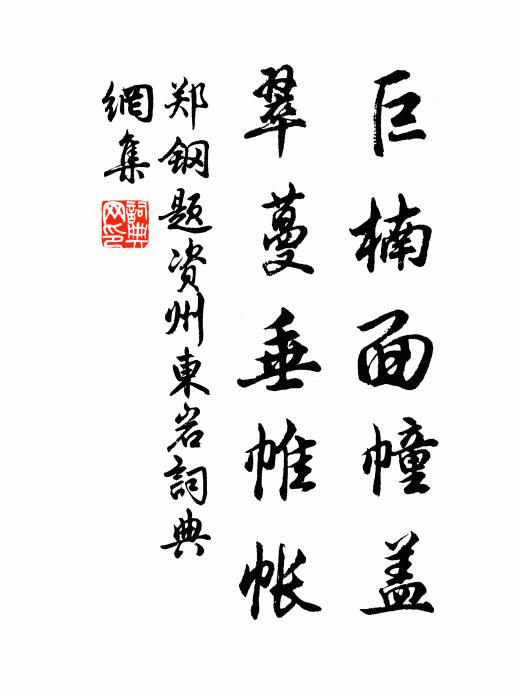 巨楠面幢盖
翠蔓垂帷帐
郑钢题资州東岩詞典
網集
詞典
网印